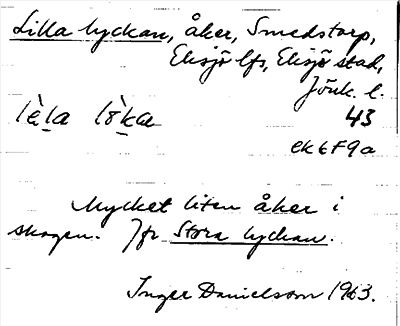 Lilla lyckan, åker, Smedstorp,
Eksjö lfs, Eksjö stad,
Jönk. l.
lèla lòka 43
ek 6 F 9 a
Mycket liten åker i
skogen. Jfr Stora lyckan.
Inger Danielsson 1963.